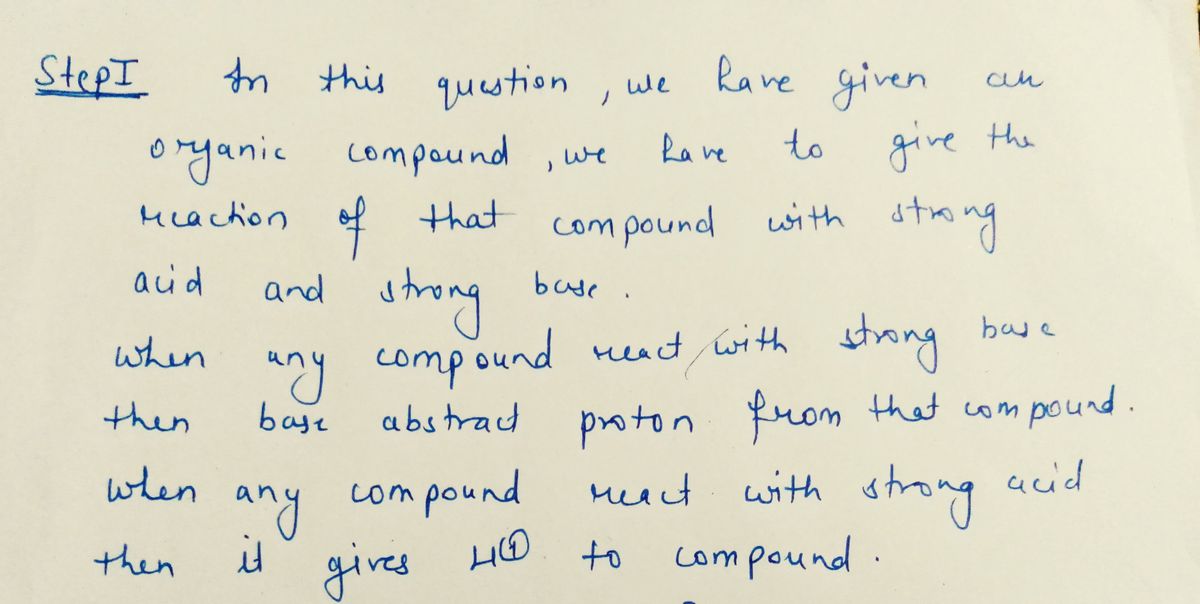 Step I In this question, we have given an
organic compound, we have to give the
reaction of that compound with strong
acid and strong base.
when any compound react with strong base
then base abstract proton from that compound.
when any compound react with strong acid
then it gives H⊕ to compound.